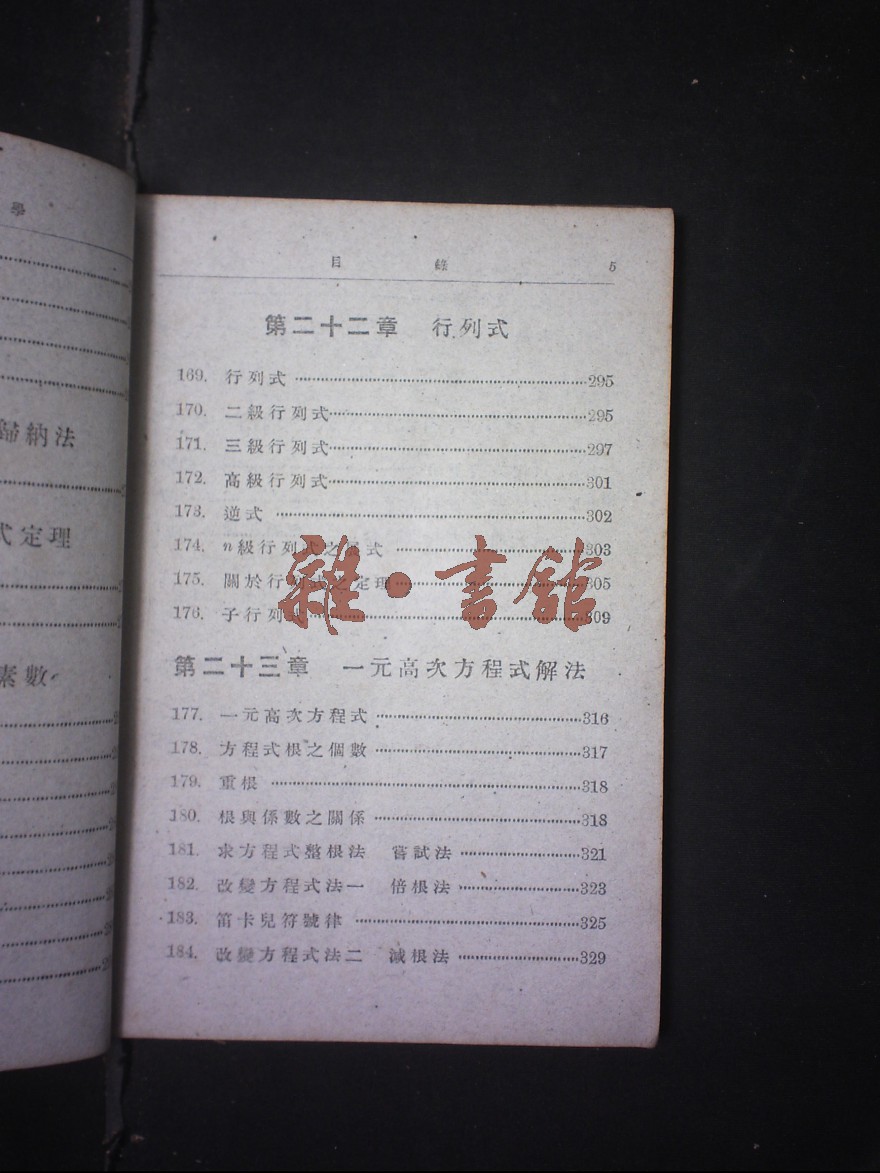 學
歸納法
式定理
素數
目 錄 5
第二十二章 行列式
169. 行列式 ……295
170. 二級行列式……295
171. 三級行列式……297
172. 高級行列式……301
173. 逆式 ……302
174. n級行列式之展式 ……303
175. 關於行列式之定理……305
176. 子行列式……309
雜·書館
第二十三章 一元高次方程式解法
177. 一元高次方程式……316
178. 方程式根之個數……317
179. 重根 ……318
180. 根與係數之關係……318
181. 求方程式整根法 嘗試法……321
182. 改變方程式法一 倍根法……323
183. 笛卡兒符號律 ……325
184. 改變方程式法二 減根法……329